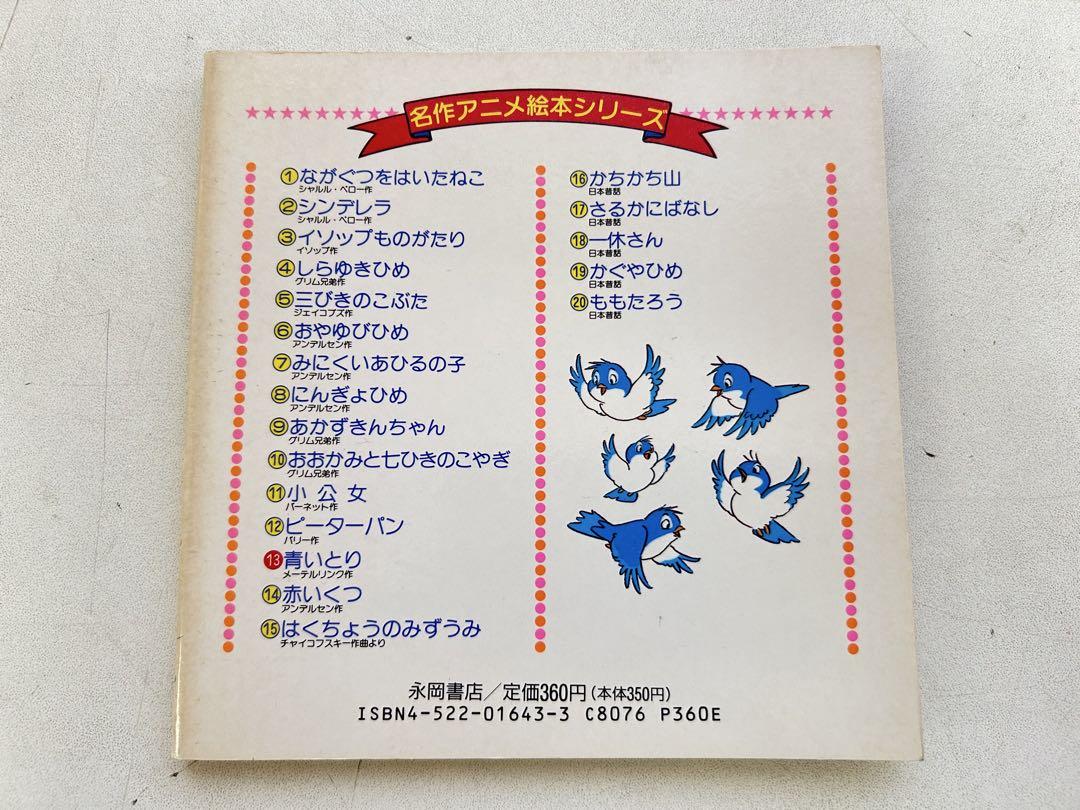 名作アニメ絵本シリーズ
①ながぐつをはいたねこ
シャルル・ペロー作
②シンデレラ
シャルル・ペロー作
③イソップものがたり
イソップ作
④しらゆきひめ
グリム兄弟作
⑤三びきのこぶた
ジェイコブズ作
⑥おやゆびひめ
アンデルセン作
⑦みにくいあひるの子
アンデルセン作
⑧にんぎょひめ
アンデルセン作
⑨あかずきんちゃん
グリム兄弟作
⑩おおかみと七ひきのこやぎ
グリム兄弟作
⑪小公女
バーネット作
⑫ピーターパン
バリー作
⑬青いとり
メーテルリンク作
⑭赤いくつ
アンデルセン作
⑮はくちょうのみずうみ
チャイコフスキー作曲より
⑯かちかち山
日本昔話
⑰さるかにばなし
日本昔話
⑱一休さん
日本昔話
⑲かぐやひめ
日本昔話
⑳ももたろう
日本昔話
永岡書店/定価360円(本体350円)
ISBN4-522-01643-3 C8076 P360E